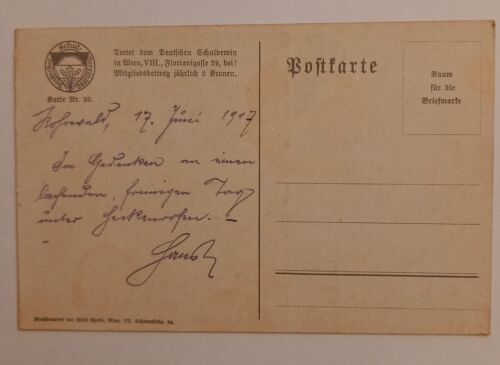 Deutscher Schulverein
Karte Nr. 80.
Tretet dem Deutschen Schulverein
in Wien, VIII., Florianigasse 39, bei!
Mitgliedsbeitrag jährlich 2 Kronen.
Postkarte
Raum
für die
Briefmarke
Rohrwald, 17. Juni 1917
Im Gedenken an einen
lachenden, sonnigen Tag
unter Heckenrosen. –
Wien, VII.